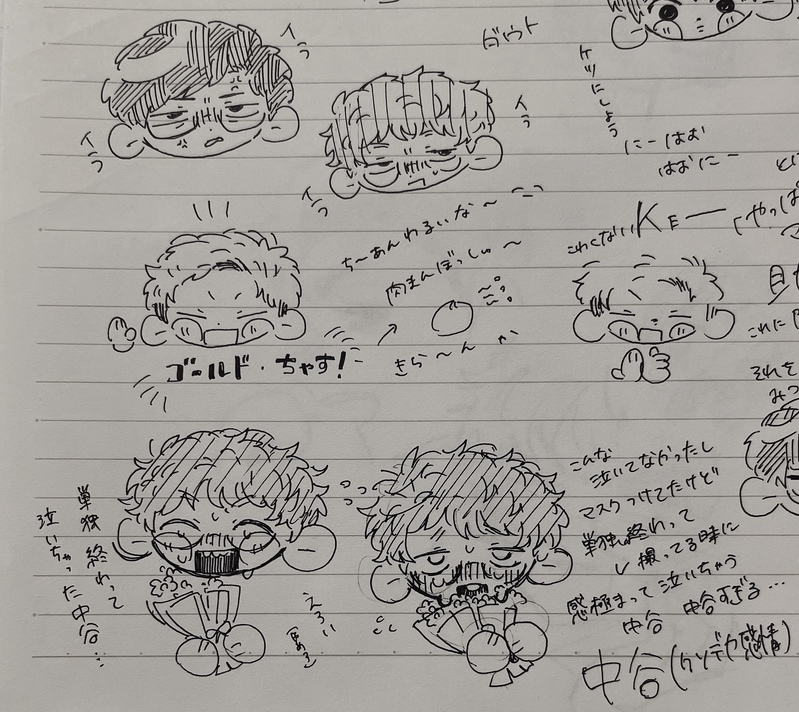 イラ
ダウト
ケツにしよう
イラ
イラ
イラ
にーはお
はおにー
ち〜あんわるいな〜
肉まんぼっしゅ〜
きら〜ん
こわくない
KE—
「やっぱ
これに
それを
みつ
ゴールド・ちゃす!
単独終わって
泣いちゃった中谷…
えろい
こんな
泣いてなかったし
マスクつけてたけど
単独終わって
し撮ってる時に
感極まって泣いちゃう
中谷 中谷すぎる…
中谷(クソデカ感情)